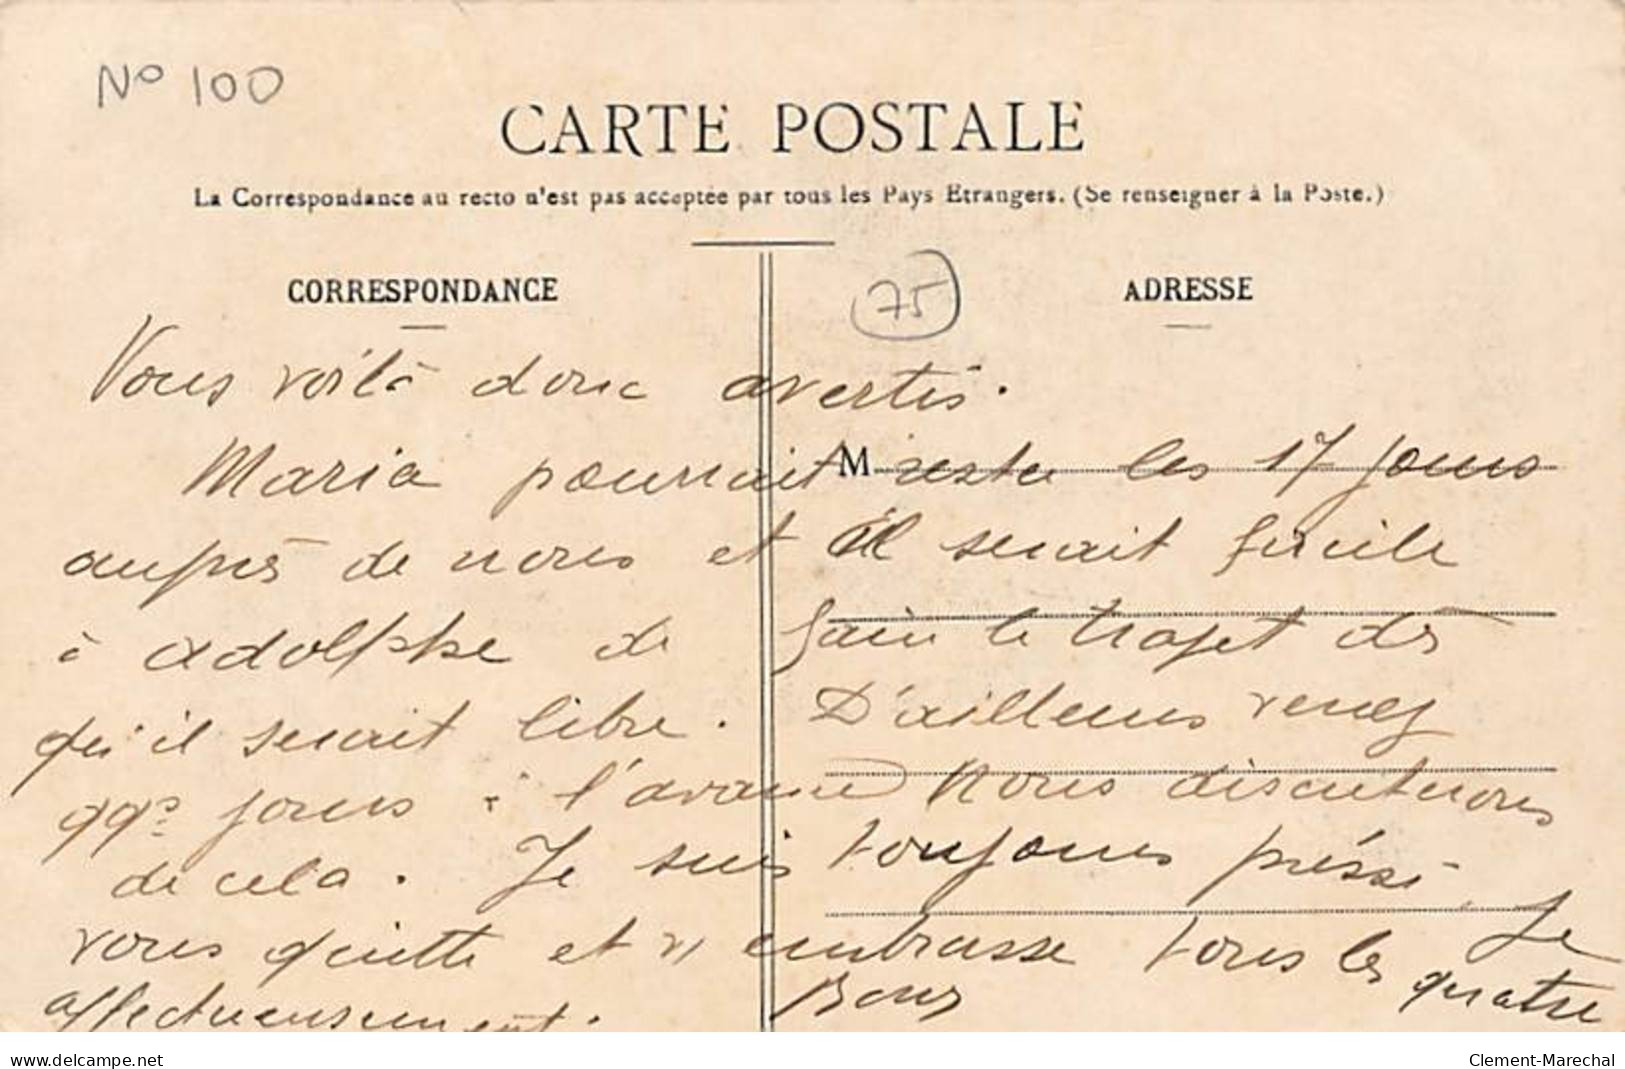 No 100
CARTE POSTALE
La Correspondance au recto n'est pas acceptée par tous les Pays Etrangers. (Se renseigner à la Poste.)
CORRESPONDANCE
75
ADRESSE
Vous voilà donc avertis.
M
Maria pourrait rester les 17 jours
auprès de nous et il serait facile
à Adolphe de faire le trajet dès
qu'il serait libre. D'ailleurs venez
qqs jours à l'avance Nous discuterons
de cela. Je suis toujours préssé. Je
vous quitte et v embrasse tous les quatre
affectueusement.
delcampe.net
Clement-Marechal